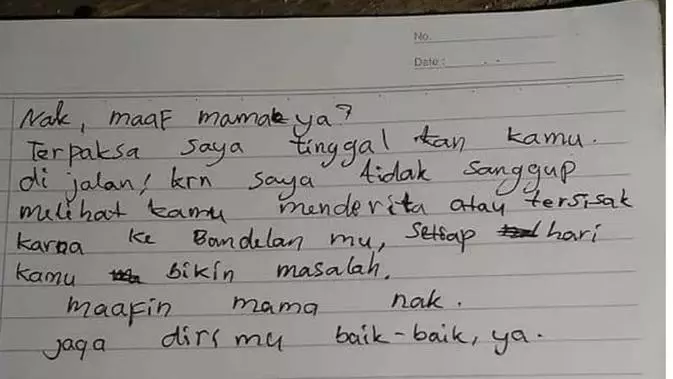 No.
Date :
Nak, maaf mamak ya?
Terpaksa saya tinggal kan kamu.
di jalan, krn saya tidak sanggup
melihat kamu menderita atau tersisak
karna ke Bandelan mu, setiap hari
kamu bikin masalah.
maafin mama nak.
jaga diri mu baik-baik, ya.